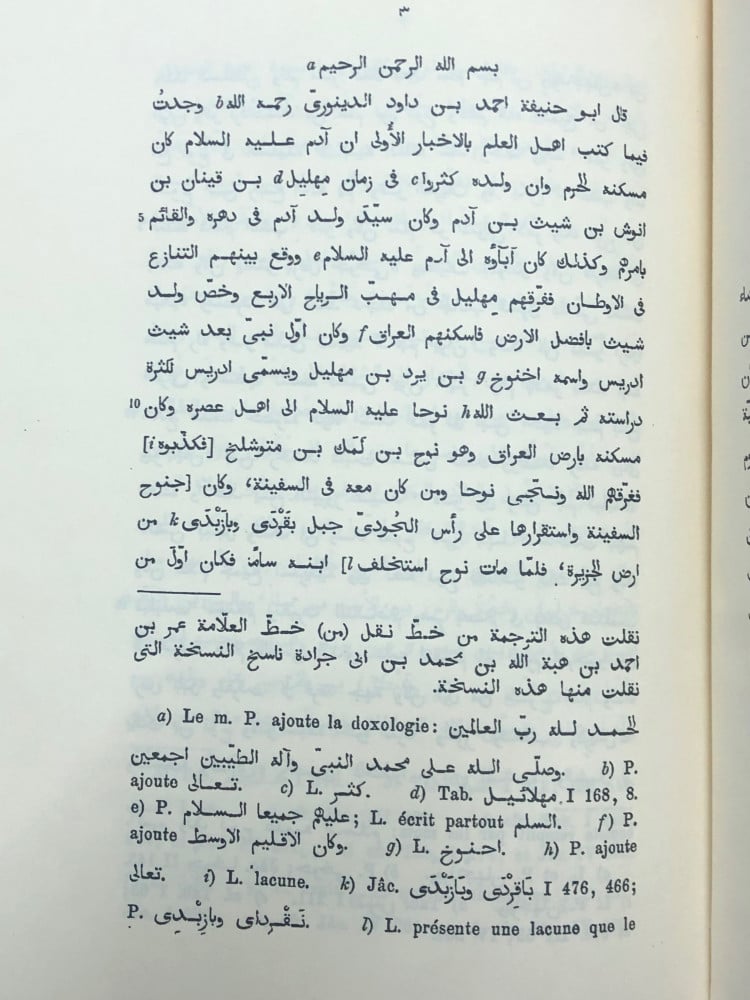 ٣
بسم الله الرحمن الرحيم a
قال ابو حنيفة احمد بن داود الدينورىّ رحمه الله b وجدتُ
فيما كتب اهل العلم بالاخبار الأُولى ان آدم عليه السلام كان
مسكنه الحرم وان ولده كثروا c فى زمان مِهليل d بن قينان بن
انوش بن شيث بن آدم وكان سيّدَ ولد آدم فى دهره والقائم 5
بامرهم وكذلك كان آبآؤه الى آدم عليه السلام e ووقع بينهم التنازع
فى الاوطان ففرّقهم مِهليل فى مهبّ الرياح الاربع وخصّ ولد
شيث بافضل الارض فاسكنهم العراق f وكان اوّل نبىّ بعد شيث
ادريس واسمه اخنوخ g بن يرد بن مهليل ويسمّى ادريس لكثرة
دراسته ثم بعث الله h نوحا عليه السلام الى اهل عصره وكان 10
مسكنه بارض العراق وهو نوح بن لَمَك بن متوشلخ [فكذّبوه i]
فغرّقهم الله ونتجّى نوحا ومن كان معه فى السفينة، وكان [جنوح
السفينة واستقرارها على رأس الجُودىّ جبل بقَرْدَى وبازَبْدَى k من
ارض الجزيرة، فلمّا مات نوح استخلف l] ابنه سامًا فكان اوّل من
نقلت هذه الترجمة من خطّ نقل (من) خطّ العلّامة عمر بن
احمد بن هبة الله بن محمد بن ابى جرادة ناسخ النسخة التى
نقلت منها هذه النسخة.
a) Le m. P. ajoute la doxologie: الحمد لله ربّ العالمين
وصلّى الله على محمد النبىّ وآله الطيّبين اجمعين. b) P.
ajoute تعالى. c) L. كثر. d) Tab. مهلائيل I 168, 8.
e) P. عليهم جميعا السلام; L. écrit partout السلم. f) P.
ajoute وكان الاقليم الاوسط. g) L. احنوخ. h) P. ajoute
تعالى. i) L. lacune. k) Jâc. بَاقِرْدَى وبَازَبْدَى I 476, 466;
P. نَقْرداى وبازِبْدِى. l) L. présente une lacune que le